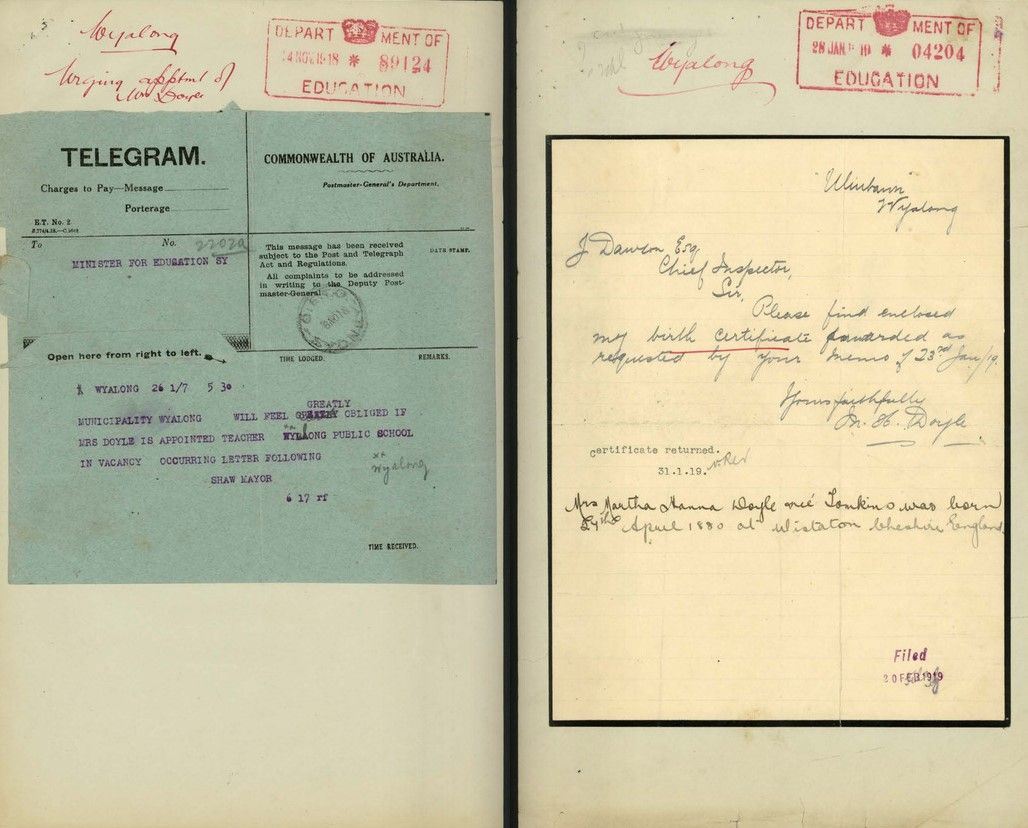 Wyalong
Urging apptmt of
Mrs Doyle
DEPARTMENT OF
14 NOV. 1918 * 89124
EDUCATION
TELEGRAM.
Charges to Pay—Message
Porterage
E.T. No. 2
COMMONWEALTH OF AUSTRALIA.
Postmaster-General's Department.
To
No. 2202a
MINISTER FOR EDUSATION SY
This message has been received
subject to the Post and Telegraph
Act and Regulations.
All complaints to be addressed
in writing to the Deputy Post-
master-General
DATE STAMP.
Open here from right to left.
TIME LODGED.
REMARKS.
WYALONG 26 1/7 5 30
GREATLY
MUNICIPALITY WYALONG WILL FEEL OBLIGED IF
MRS DOYLE IS APPOINTED TEACHER WYLLONG PUBLIC SCHOOL
IN VACANCY OCCURRING LETTER FOLLOWING
xx
Wyalong
SHAW MAYOR
6 17 rf
TIME RECEIVED.
Wyalong
DEPARTMENT OF
28 JAN. 19 * 04204
EDUCATION
Wyalong
J Dawson Esq.
Chief Inspector,
Sir,
Please find enclosed
my birth certificate forwarded as
requested by your memo of 23rd Jan/19.
Yours faithfully
M. H. Doyle
Certificate returned.
31.1.19.
Mrs Martha Hanna Doyle neé Tomkins was born
24th April 1880 at Wistaton Cheshire England.
Filed
20 FEB 1919